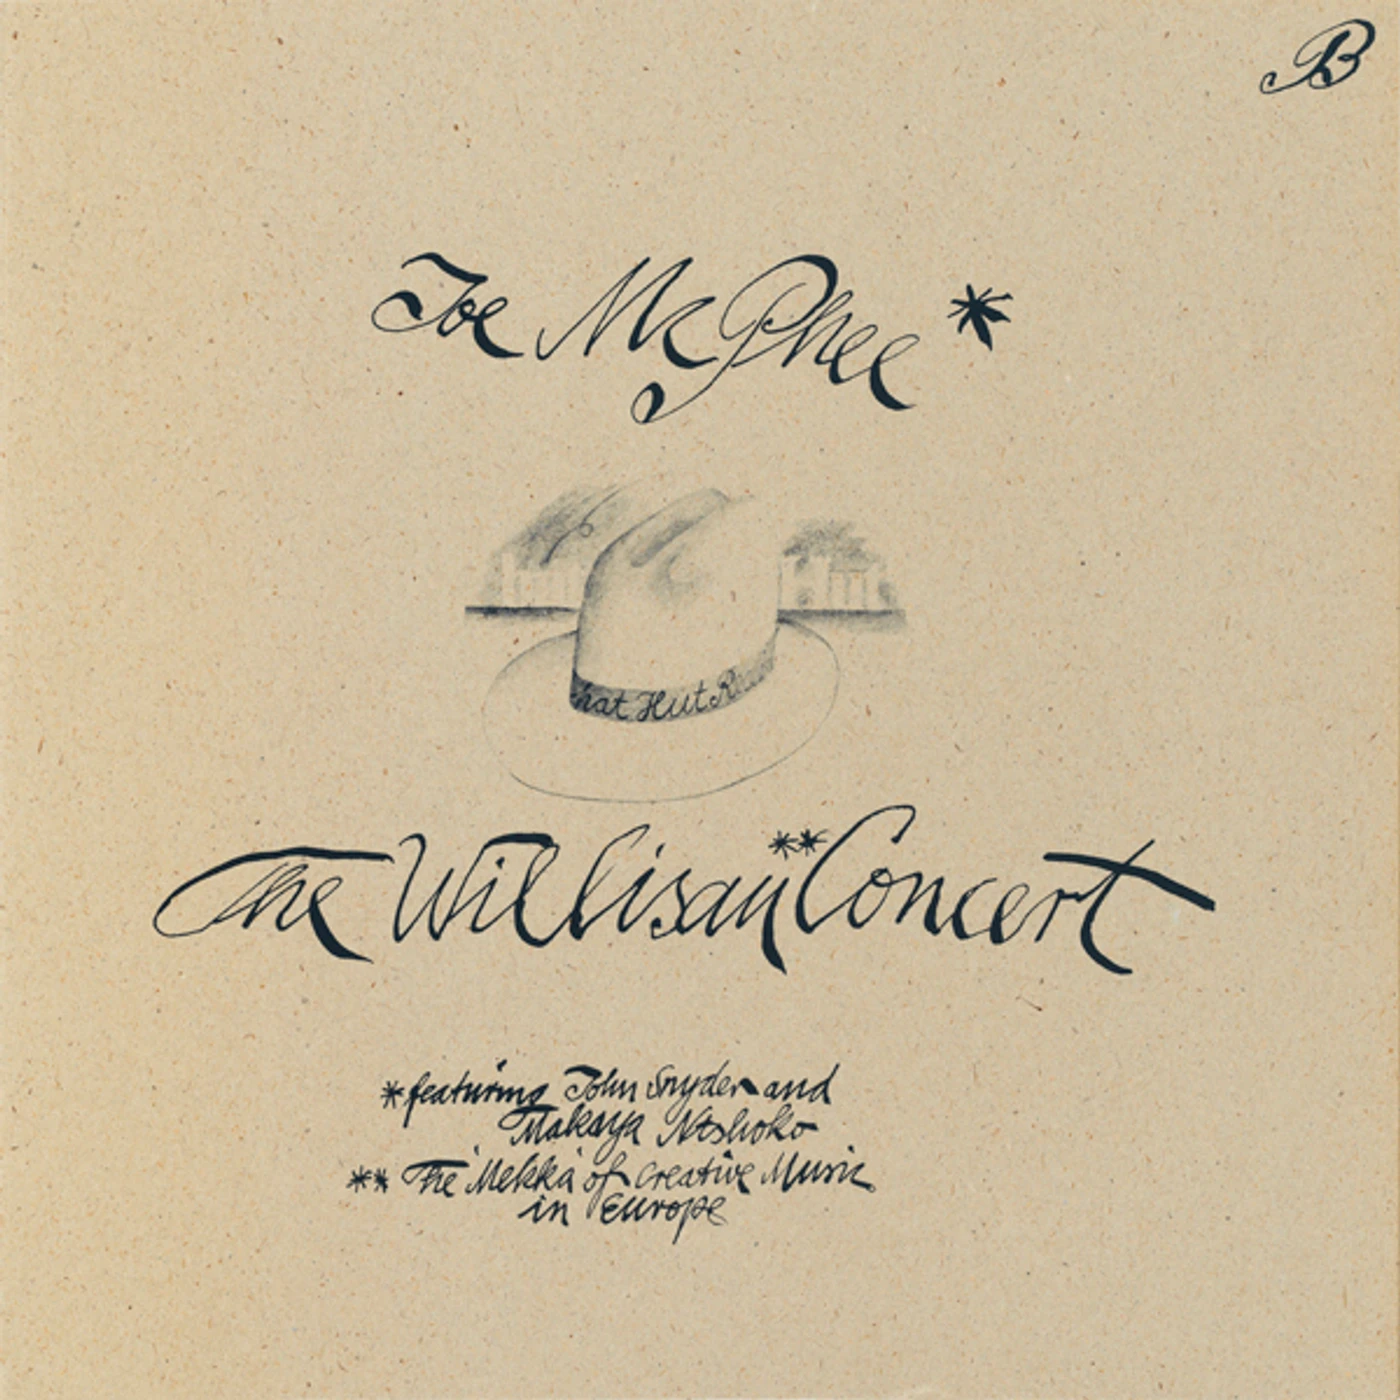 B
Joe McPhee*
hat Hut
The Willisau** Concert
*featuring John Snyder and
Makaya Ntshoko
** The 'Mekka' of Creative Music
in Europe